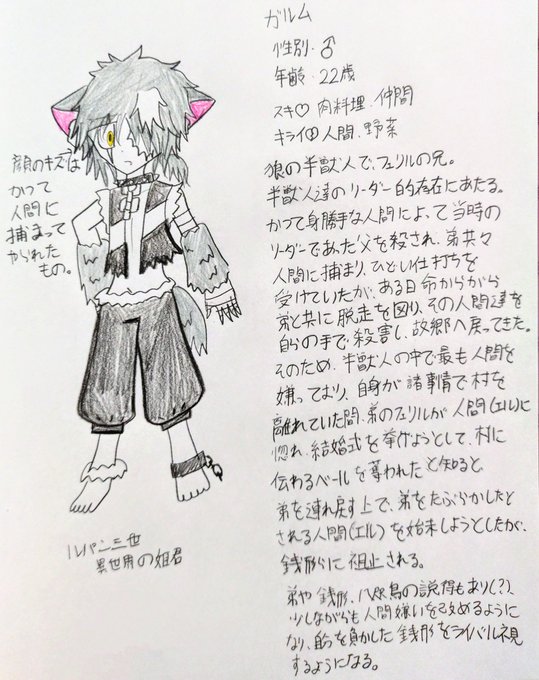 ガルム
性別・♂
年齢・22歳
スキ♡ 肉料理、仲間
キライ 人間、野菜
狼の半獣人で、フェリルの兄。
半獣人達のリーダー的存在にあたる。
かつて身勝手な人間によって当時の
リーダーであった父を殺され、弟共々
人間に捕まり、ひどい仕打ちを
受けていたが、ある日命からがら
弟と共に脱走を図り、その人間達を
自らの手で殺害し、故郷へ戻ってきた。
そのため、半獣人の中で最も人間を
嫌っており、自身が諸事情で村を
離れていた間、弟のフェリルが人間(エル)に
惚れ、結婚式を挙げようとして、村に
伝わるベールを奪われたと知ると
弟を連れ戻す上で、弟をたぶらかしたと
される人間(エル)を始末しようとしたが、
銭形らに阻止される。
弟や銭形、八咫烏の説得もあり(?)、
少しながらも人間嫌いを改めるように
なり、自分を負かした銭形をライバル視
するようになる。
顔のキズは
かつて
人間に
捕まって
やられた
もの。
ルパン三世
異世界の姫君